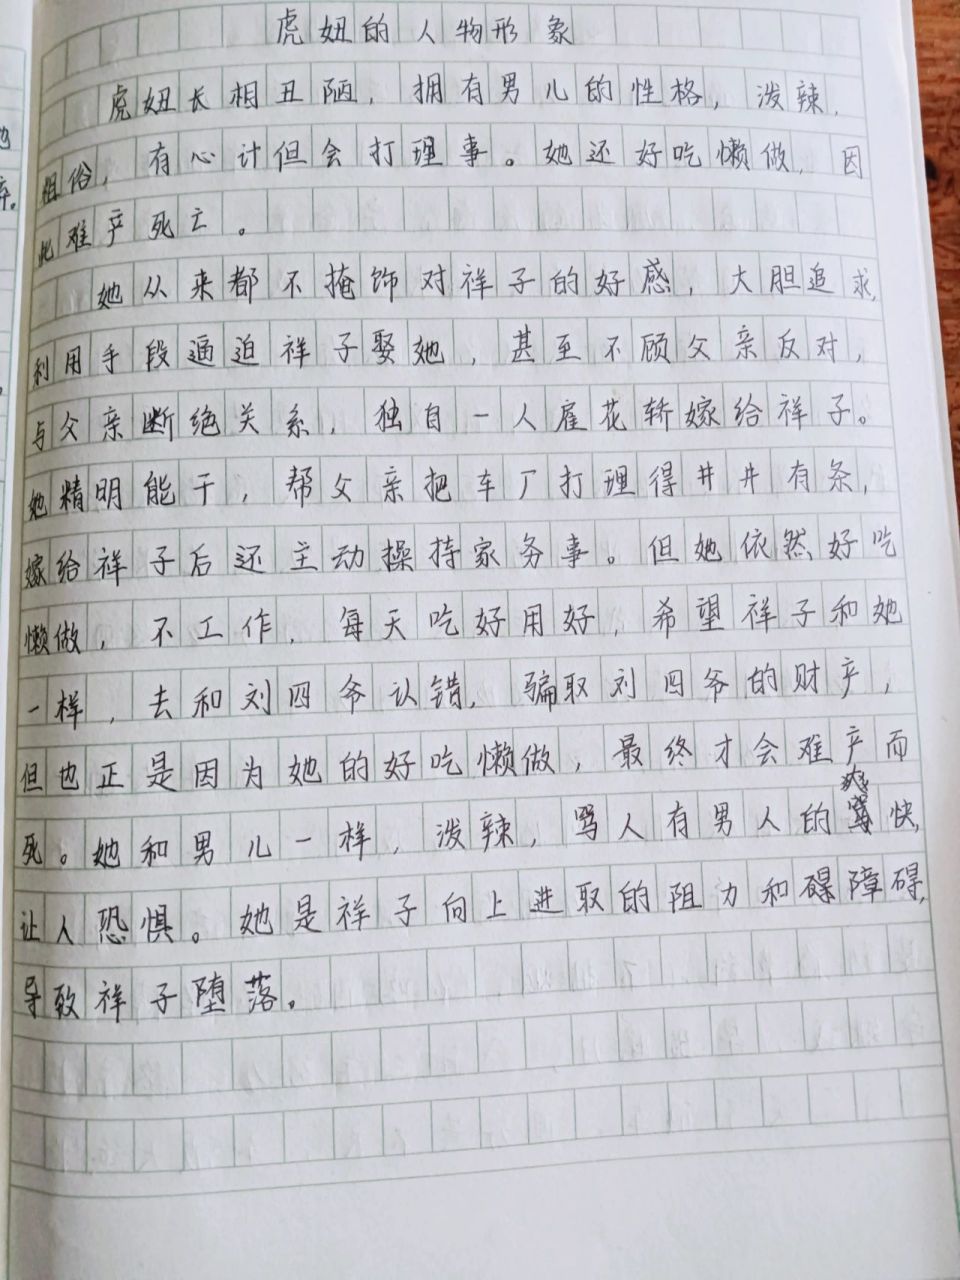 虎妞的人物形象
虎妞长相丑陋，拥有男儿的性格，泼辣，
粗俗，有心计但会打理事。她还好吃懒做，因
此难产死亡。
她从来都不掩饰对祥子的好感，大胆追求，
利用手段逼迫祥子娶她，甚至不顾父亲反对，
与父亲断绝关系，独自一人雇花轿嫁给祥子。
她精明能干，帮父亲把车厂打理得井井有条，
嫁给祥子后还主动操持家务事。但她依然好吃
懒做，不工作，每天吃好用好，希望祥子和她
一样，去和刘四爷认错，骗取刘四爷的财产，
但也正是因为她的好吃懒做，最终才会难产而
死。她和男儿一样，泼辣，骂人有男人的爽快，
让人恐惧。她是祥子向上进取的阻力和障碍，
导致祥子堕落。